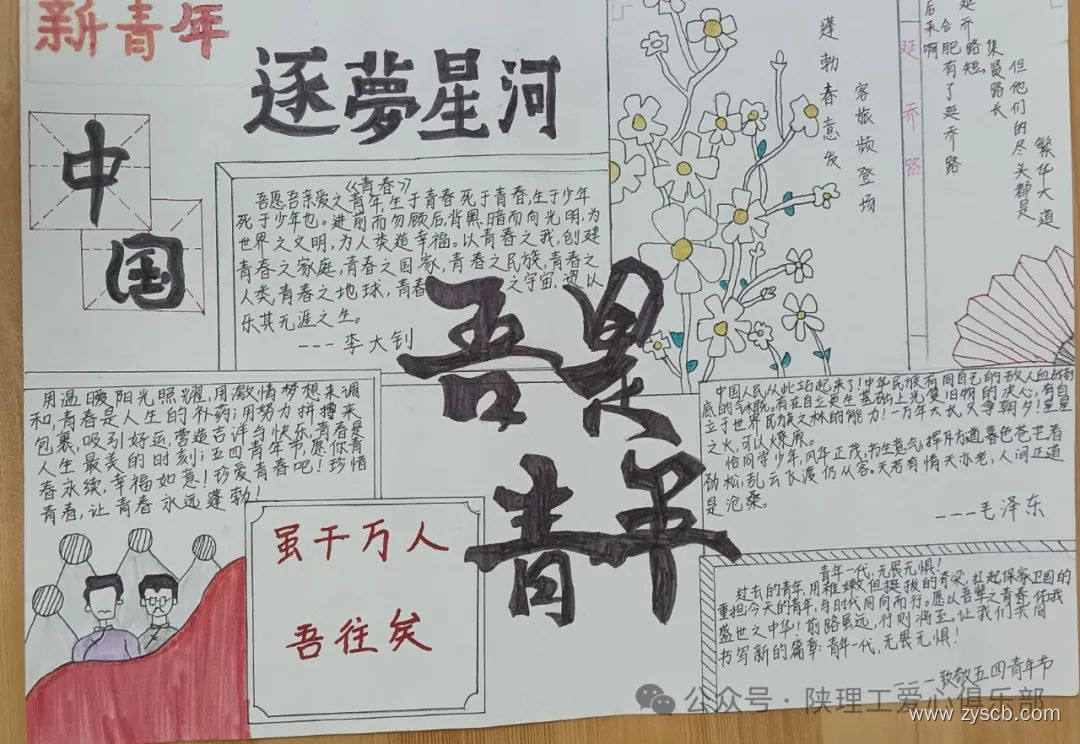 新青年
逐夢星河
中
国
《青春》
吾愿吾亲爱之青年,生于青春死于青春,生于少年
死于少年也。进前而勿顾后,背黑暗而向光明,为
世界之文明,为人类造幸福。以青春之我,创建
青春之家庭,青春之国家,青春之民族,青春之
人类,青春之地球,青春之宇宙,资以
乐其无涯之生。
---李大钊
蓬勃春意发
客旅频登场
延乔路
繁华大道
但他们的尽头都是
集贤路长
延乔路短,
合肥有了延乔路
后来啊
吾是
青年
用温暖阳光照耀,用激情梦想来调
和,青春是人生的补药;用努力拼搏来
包裹,吸引好运,营造吉祥与快乐,青春是
人生最美的时刻;五四青年节,愿你青
春永续,幸福如意!珍爱青春吧!珍惜
青春,让青春永远蓬勃!
虽千万人
吾往矣
中国人民从此站起来了!中华民族有同自己的敌人血战到
底的气概,有在自力更生基础上光复旧物的决心,有自
立于世界民族之林的能力!一万年太长,只争朝夕!星星
之火,可以燎原。
恰同学少年,风华正茂,书生意气,挥斥方遒,暮色苍茫看
劲松,乱云飞渡仍从容,天若有情天亦老,人间正道
是沧桑。
---毛泽东
青年一代,无畏无惧!
过去的青年,用稚嫩但挺拔的脊梁,扛起保家卫国的
重担;今天的青年,与时代同向而行。愿以吾辈之青春,
盛世之中华!前路虽远,行则将至。让我们共同
书写新的篇章:青年一代,无畏无惧!
----致敬五四青年节
公众号·陕理工爱心俱乐部
www.zyscb.com